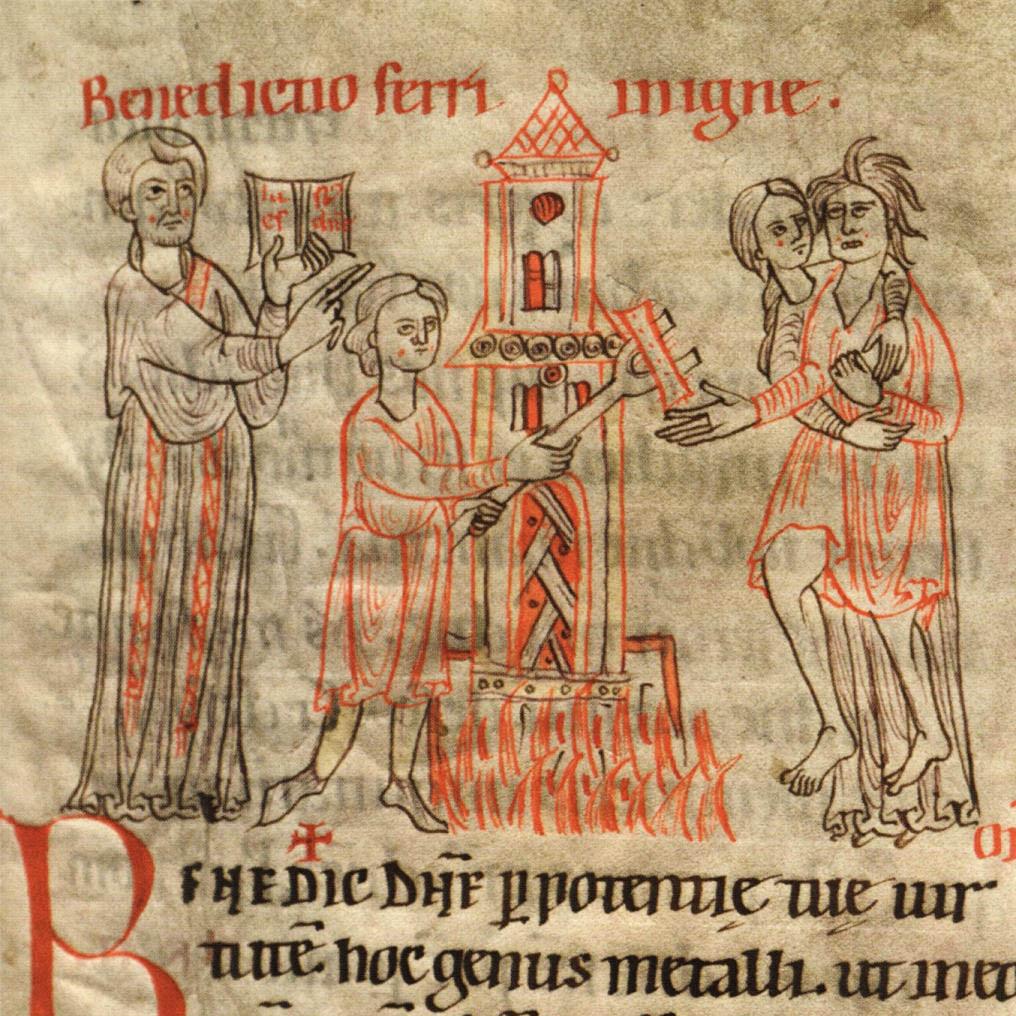 Benedictio ferri in igne.
iu es
st9 dñe
BENEDIC DÑE p potentie tue uir
tutẽ. hoc genus metalli. ut in eo